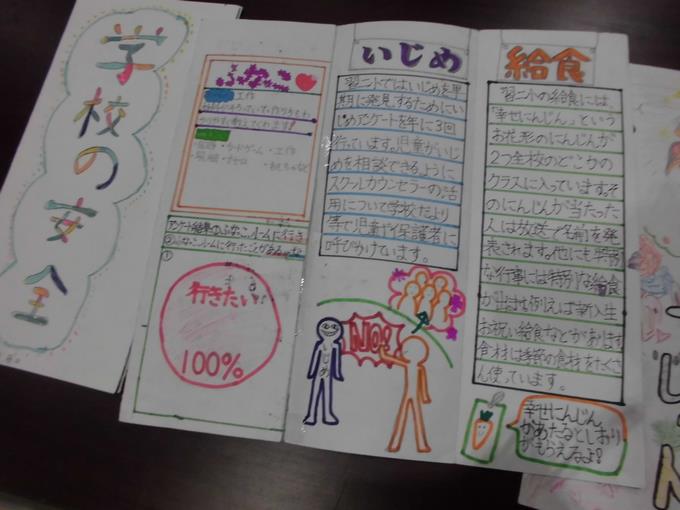 学校の安全
工作
・カードゲーム・工作
・オセロ
アンケート結果
①
行きたい!
100%
いじめ
習二小ではいじめを早
期に発見するためにい
じめアンケートを年に3回
行っています。児童がいじ
めを相談できるように
スクールカウンセラーの活
用について学校だより
等で児童や保護者に
呼びかけています。
NO!
いじめ
給食
習二小の給食には、
「幸せにんじん」という
お花形のにんじんが
2つ全校のどこかの
クラスに入っています。そ
のにんじんが当たった
人は放送で名前を発
表されます。他にも季節
な行事には特別な給食
が出ます。例えば新入生
お祝い給食などがあります。
食材には季節の食材をたくさ
ん使っています。
幸せにんじん
があたるとしおり
がもらえるよ!